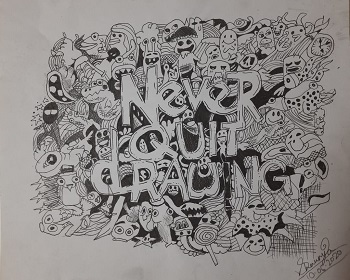 NeveR
QUIT
dRAWING